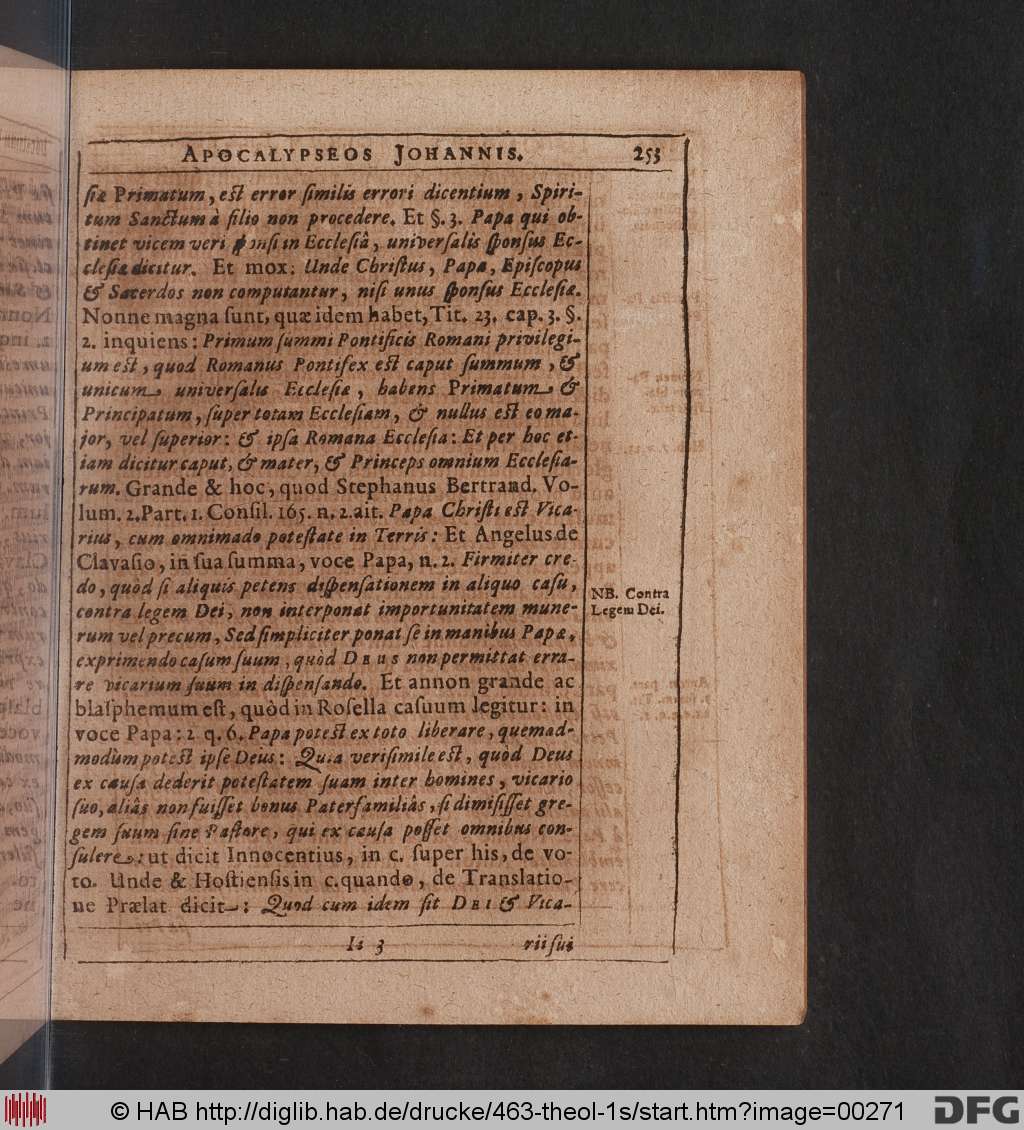 APOCALYPSEOS JOHANNIS. 253
ſiæ Primatum, eſt error ſimilis errori dicentium, Spiri-
tum Sanctum à filio non procedere. Et §. 3. Papa qui ob-
tinet vicem veri ſponſi in Eccleſiâ, univerſalis ſponſus Ec-
cleſiæ dicitur. Et mox: Unde Chriſtus, Papa, Epiſcopus
& Sacerdos non computantur, niſi unus ſponſus Eccleſiæ.
Nonne magna ſunt, quæ idem habet, Tit. 23. cap. 3. §.
2. inquiens: Primum ſummi Pontificis Romani privilegi-
um eſt, quod Romanus Pontifex eſt caput ſummum, &
unicum, univerſalis Eccleſiæ, habens Primatum, &
Principatum, ſuper totam Eccleſiam, & nullus eſt eo ma-
jor, vel ſuperior: & ipſa Romana Eccleſia: Et per hoc et-
iam dicitur caput, & mater, & Princeps omnium Eccleſia-
rum. Grande & hoc, quod Stephanus Bertrand. Vo-
lum. 2. Part. 1. Conſil. 165. n. 2. ait. Papa Chriſti eſt Vica-
rius, cum omnimado poteſtate in Terris: Et Angelus de
Clavaſio, in ſua ſumma, voce Papa, n. 2. Firmiter cre-
do, quòd ſi aliquis petens diſpenſationem in aliquo caſu,
contra legem Dei, non interponat importunitatem mune-
rum vel precum, Sed ſimpliciter ponat ſe in manibus Papæ,
exprimendo caſum ſuum, quòd DEUS non permittat erra-
re vicarium ſuum in diſpenſando. Et annon grande ac
blaſphemum eſt, quòd in Roſella caſuum legitur: in
voce Papa: 2. q. 6. Papa poteſt ex toto liberare, quemad-
modùm poteſt ipſe Deus: Quia veriſimile eſt, quòd Deus
ex cauſa dederit poteſtatem ſuam inter homines, vicario
ſuo, aliâs non fuiſſet bonus Paterfamiliâs, ſi dimiſiſſet gre-
gem ſuum ſine Paſtore, qui ex cauſa poſſet omnibus con-
ſulere: ut dicit Innocentius, in c. ſuper his, de vo-
to. Unde & Hoſtienſis in c. quando, de Translatio-
ne Prælat dicit: Quod cum idem ſit DEI & Vica-
Ii 3 rii ſui
NB. Contra
Legem Dei.
© HAB http://diglib.hab.de/drucke/463-theol-1s/start.htm?image=00271
DFG